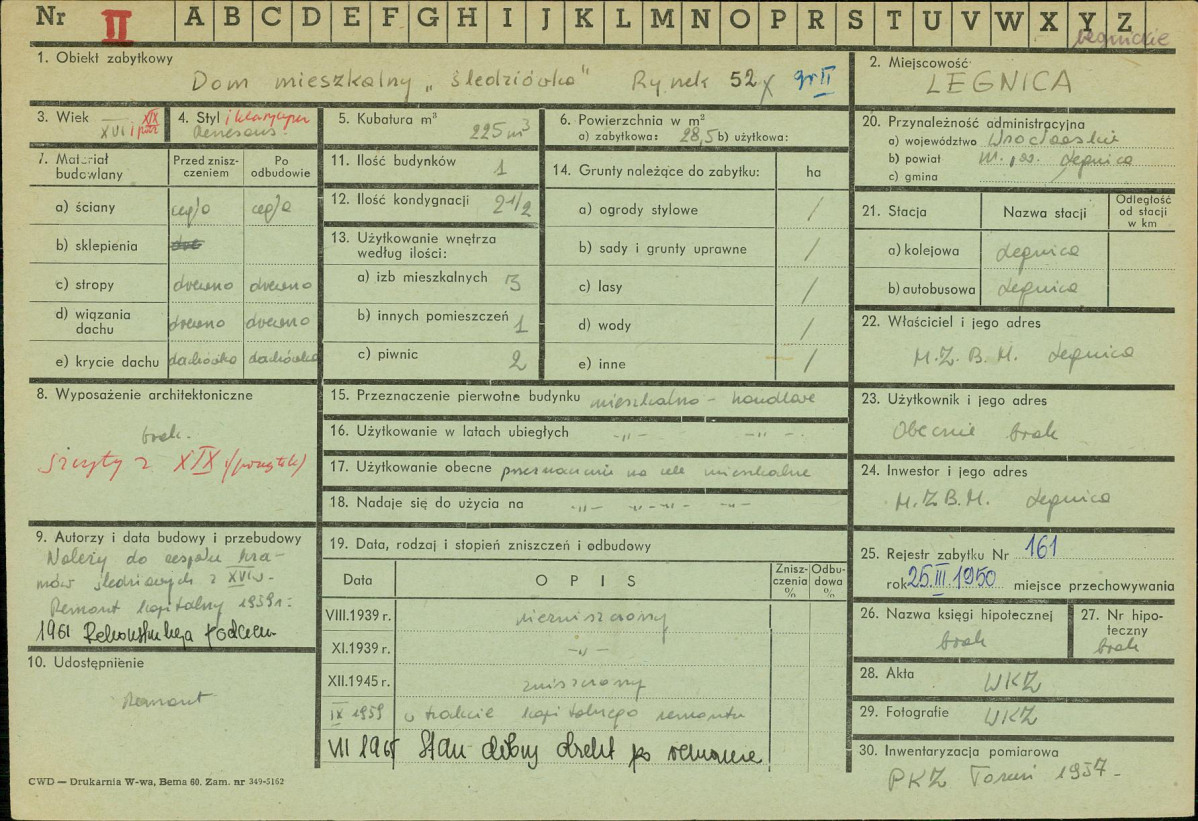 Nr II A B C D E F G H I J K L M N O P R S T U V W X Y Z
legnickie
1. Obiekt zabytkowy
Dom mieszkalny „śledziówka" Rynek 52 gr II
2. Miejscowość
LEGNICA
3. Wiek XVI i XIX pocz
4. Styl i klasycyzm
renesans.
5. Kubatura m³
225 m³
6. Powierzchnia w m²
a) zabytkowa: 28,5 b) użytkowa:
20. Przynależność administracyjna
a) województwo Wrocławskie
b) powiat Legnica
c) gmina
7. Materiał budowlany
Przed zniszczeniem
Po odbudowie
a) ściany cegła cegła
b) sklepienia
c) stropy drewno drewno
d) wiązania dachu drewno drewno
e) krycie dachu dachówka dachówka
11. Ilość budynków 1
12. Ilość kondygnacji 2 1/2
13. Użytkowanie wnętrza według ilości:
a) izb mieszkalnych 3
b) innych pomieszczeń 1
c) piwnic 2
14. Grunty należące do zabytku: ha
a) ogrody stylowe /
b) sady i grunty uprawne /
c) lasy /
d) wody /
e) inne /
21. Stacja
Nazwa stacji
Odległość od stacji w km
a) kolejowa Legnica
b) autobusowa Legnica
22. Właściciel i jego adres
M.Z.B.M. Legnica
8. Wyposażenie architektoniczne
brak.
szczyty z XIX (początek)
15. Przeznaczenie pierwotne budynku mieszkalno - handlowe
16. Użytkowanie w latach ubiegłych -„- -„-.
17. Użytkowanie obecne przeznaczenie na cele mieszkalne
18. Nadaje się do użycia na -„- -„- -„- -„-
23. Użytkownik i jego adres
Obecnie brak
24. Inwestor i jego adres
M.Z.B.M. Legnica
9. Autorzy i data budowy i przebudowy
Należy do zespołu kra-
mów śledziowych z XVI w.
Remont kapitalny 1959 r.
1961 Rekonstrukcja podcieni
19. Data, rodzaj i stopień zniszczeń i odbudowy
Data
OPIS
Zniszczenia %
Odbudowa %
VIII.1939 r. niezniszczony
XI.1939 r. -„-
XII.1945 r. zniszczony
IX 1959 w trakcie kapitalnego remontu
Stan dobry obiekt po remoncie
25. Rejestr zabytku Nr 161
rok 25.III.1950 miejsce przechowywania
26. Nazwa księgi hipotecznej
brak
27. Nr hipoteczny
brak
10. Udostępnienie
Remont
28. Akta WKZ
29. Fotografie WKZ
30. Inwentaryzacja pomiarowa
PKZ Toruń 1957.
CWD — Drukarnia W-wa, Bema 60. Zam. nr 349-5162